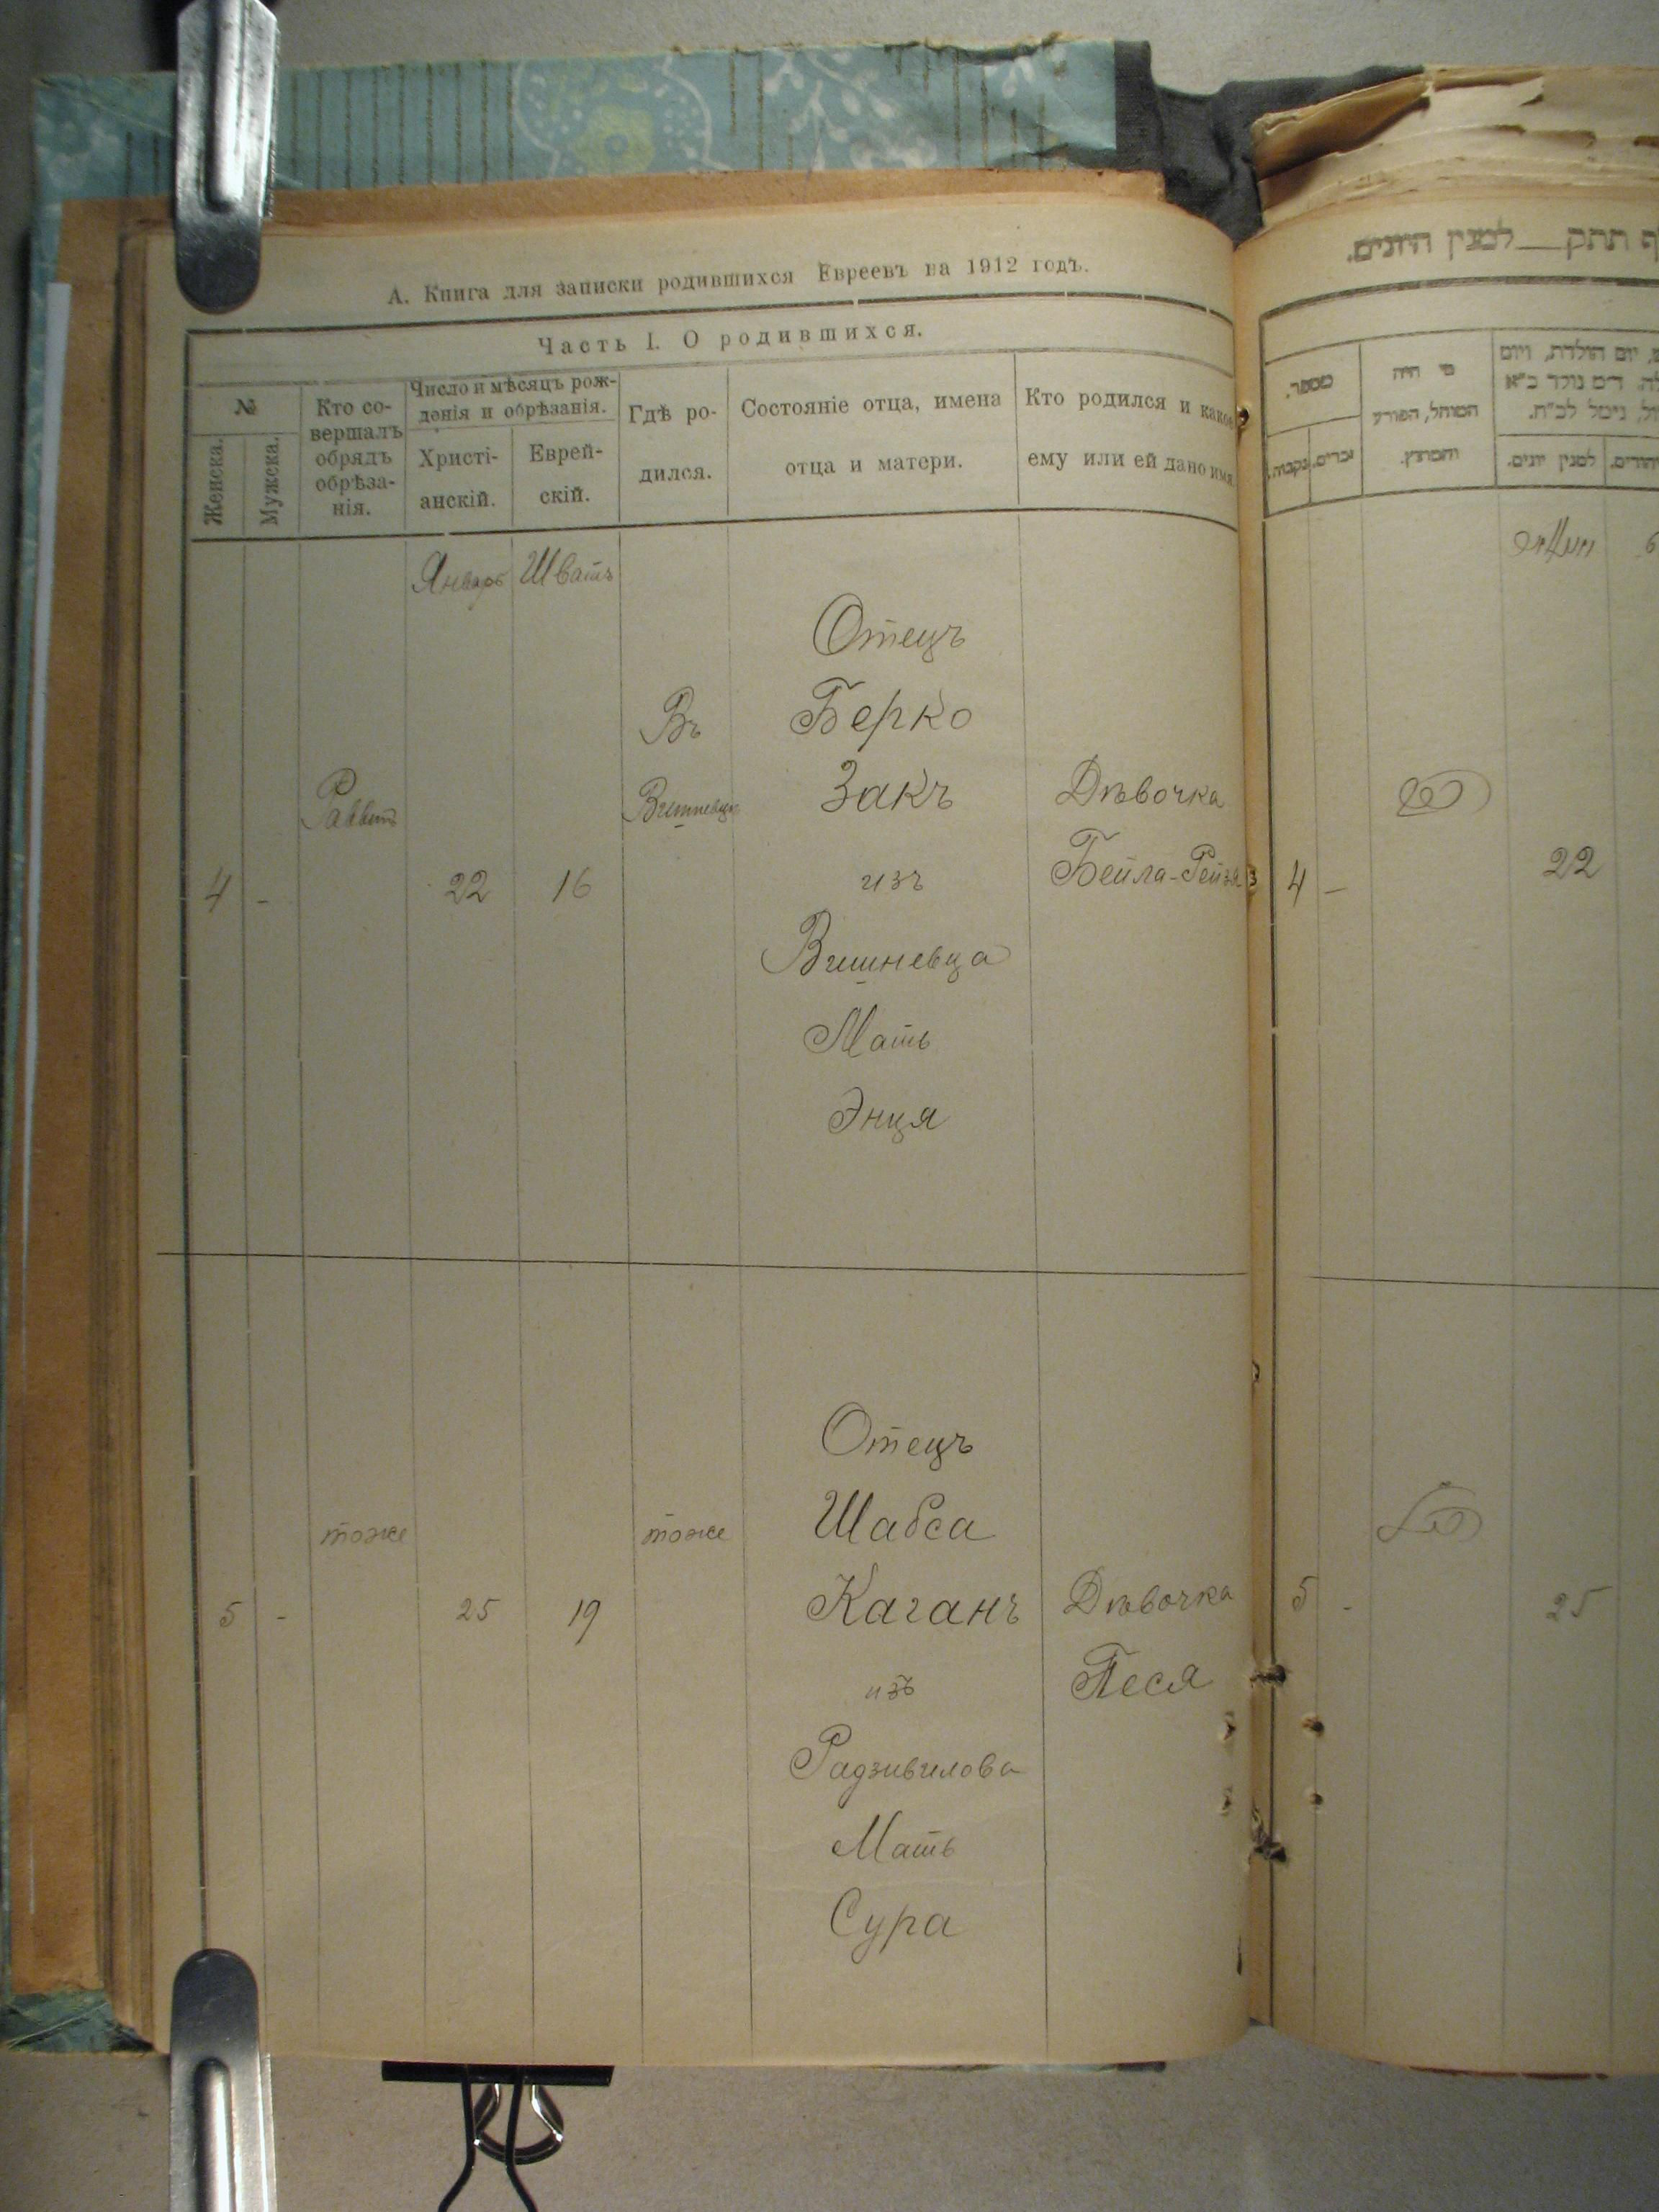 А. Книга для записки родившихся Евреевъ на 1912 годъ.
Часть I. О родившихся.
№
Женска.
Мужска.
Кто со-
вершалъ
обрядъ
обрѣза-
нія.
Число и мѣсяцъ рож-
денія и обрѣзанія.
Христі-
анскій.
Еврей-
скій.
Гдѣ ро-
дился.
Состояніе отца, имена
отца и матери.
Кто родился и какое
ему или ей дано имя.
Январь Шватъ
4 -
Раввинъ
22 16
Въ
Вишневцѣ
Отецъ
Берко
Закъ
изъ
Вишневца
Мать
Энця
Дѣвочка
Бейла-Рейзя
5 -
тоже
25 19
тоже
Отецъ
Шабса
Каганъ
изъ
Радзивилова
Мать
Сура
Дѣвочка
Песя
תתק למנין היונים.
מספר.
נקבות.
זכרים.
מי היה
המוהל, הפורע
והמוצץ.
יום הולדת, ויום
למנין יונים.
4 -
22
5 -
25